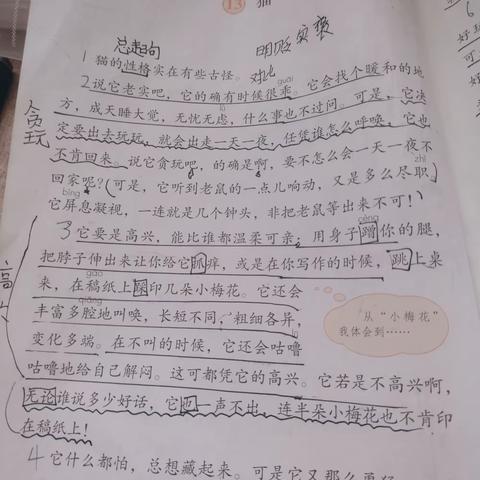 13 猫
总起句
明贬实褒
1 猫的性格实在有些古怪。 对比
guāi
2 说它老实吧，它的确有时候很乖。它会找个暖和的地
方，成天睡大觉，无忧无虑，什么事也不过问。可是，它决
lǜ
贪玩
定要出去玩玩，就会出走一天一夜，任凭谁怎么呼唤，它也
不肯回来。说它贪玩吧，的确是啊，要不怎么会一天一夜不
zhí
回家呢？（可是，它听到老鼠的一点儿响动，又是多么尽职
bǐng
它屏息凝视，一连就是几个钟头，非把老鼠等出来不可！）
cèng
3 它要是高兴，能比谁都温柔可亲：用身子蹭你的腿，
把脖子伸出来让你给它抓痒，或是在你写作的时候，跳上桌
gǎo
来，在稿纸上踩印几朵小梅花。它还会
qiāng
丰富多腔地叫唤，长短不同，粗细各异，
变化多端。在不叫的时候，它还会咕噜
lū
咕噜地给自己解闷。这可都凭它的高兴。它若是不高兴啊，
无论谁说多少好话，它也一声不出，连半朵小梅花也不肯印
在稿纸上！
从“小梅花”
我体会到……
4 它什么都怕，总想藏起来。可是它又那么勇